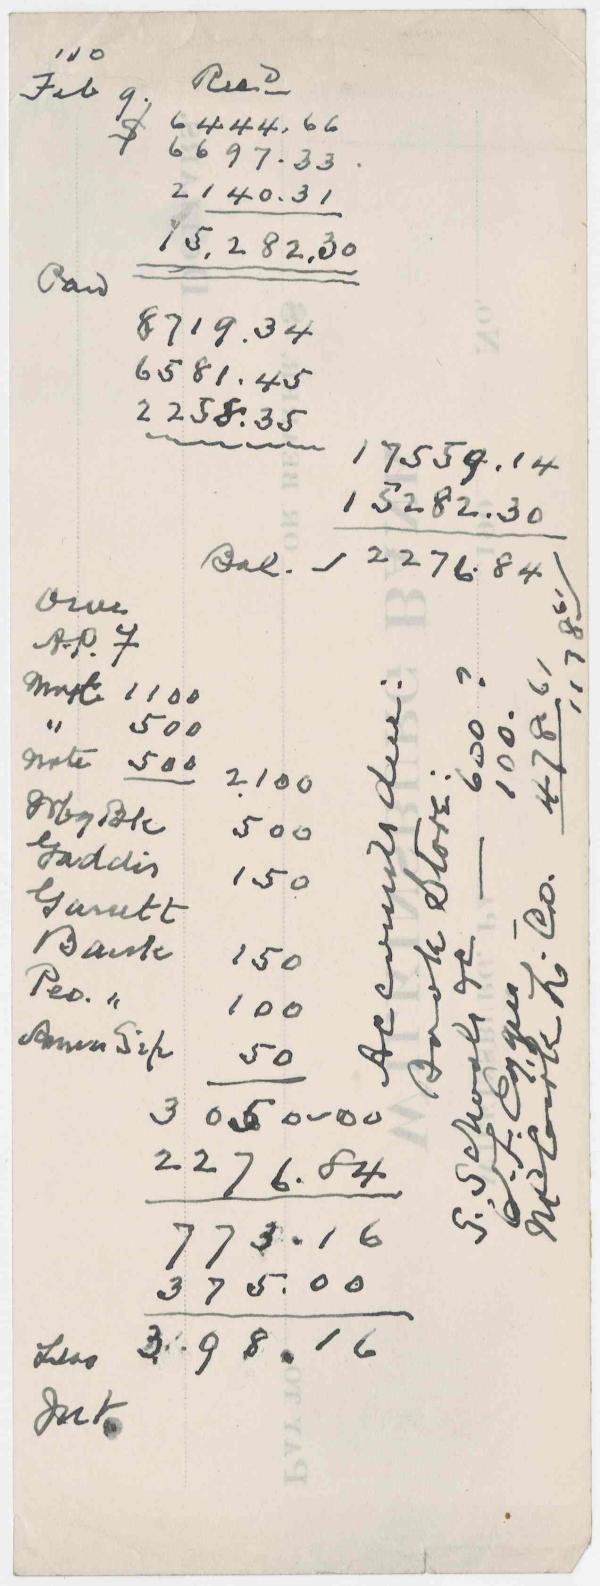 Feb 9. Rec'd
$ 6444.66
6697.33.
2140.31
15,282.30
Paid
8719.34
6581.45
2258.35
17559.14
15282.30
Bal. ✓ 2276.84
Owe
A.P. 7
Note 1100
" 500
Note 500 2100
500
Gaddis 150
Garrett
Bank 150
Peo. " 100
50
3050-00
2276.84
773.16
375.00
Less 398.16
Int.
Accounts due:
Book Store:
S. Schools &c — 600 ?
100.
Co. 478.61
1178.61
No.
OR BEARER
BANK
PAY TO